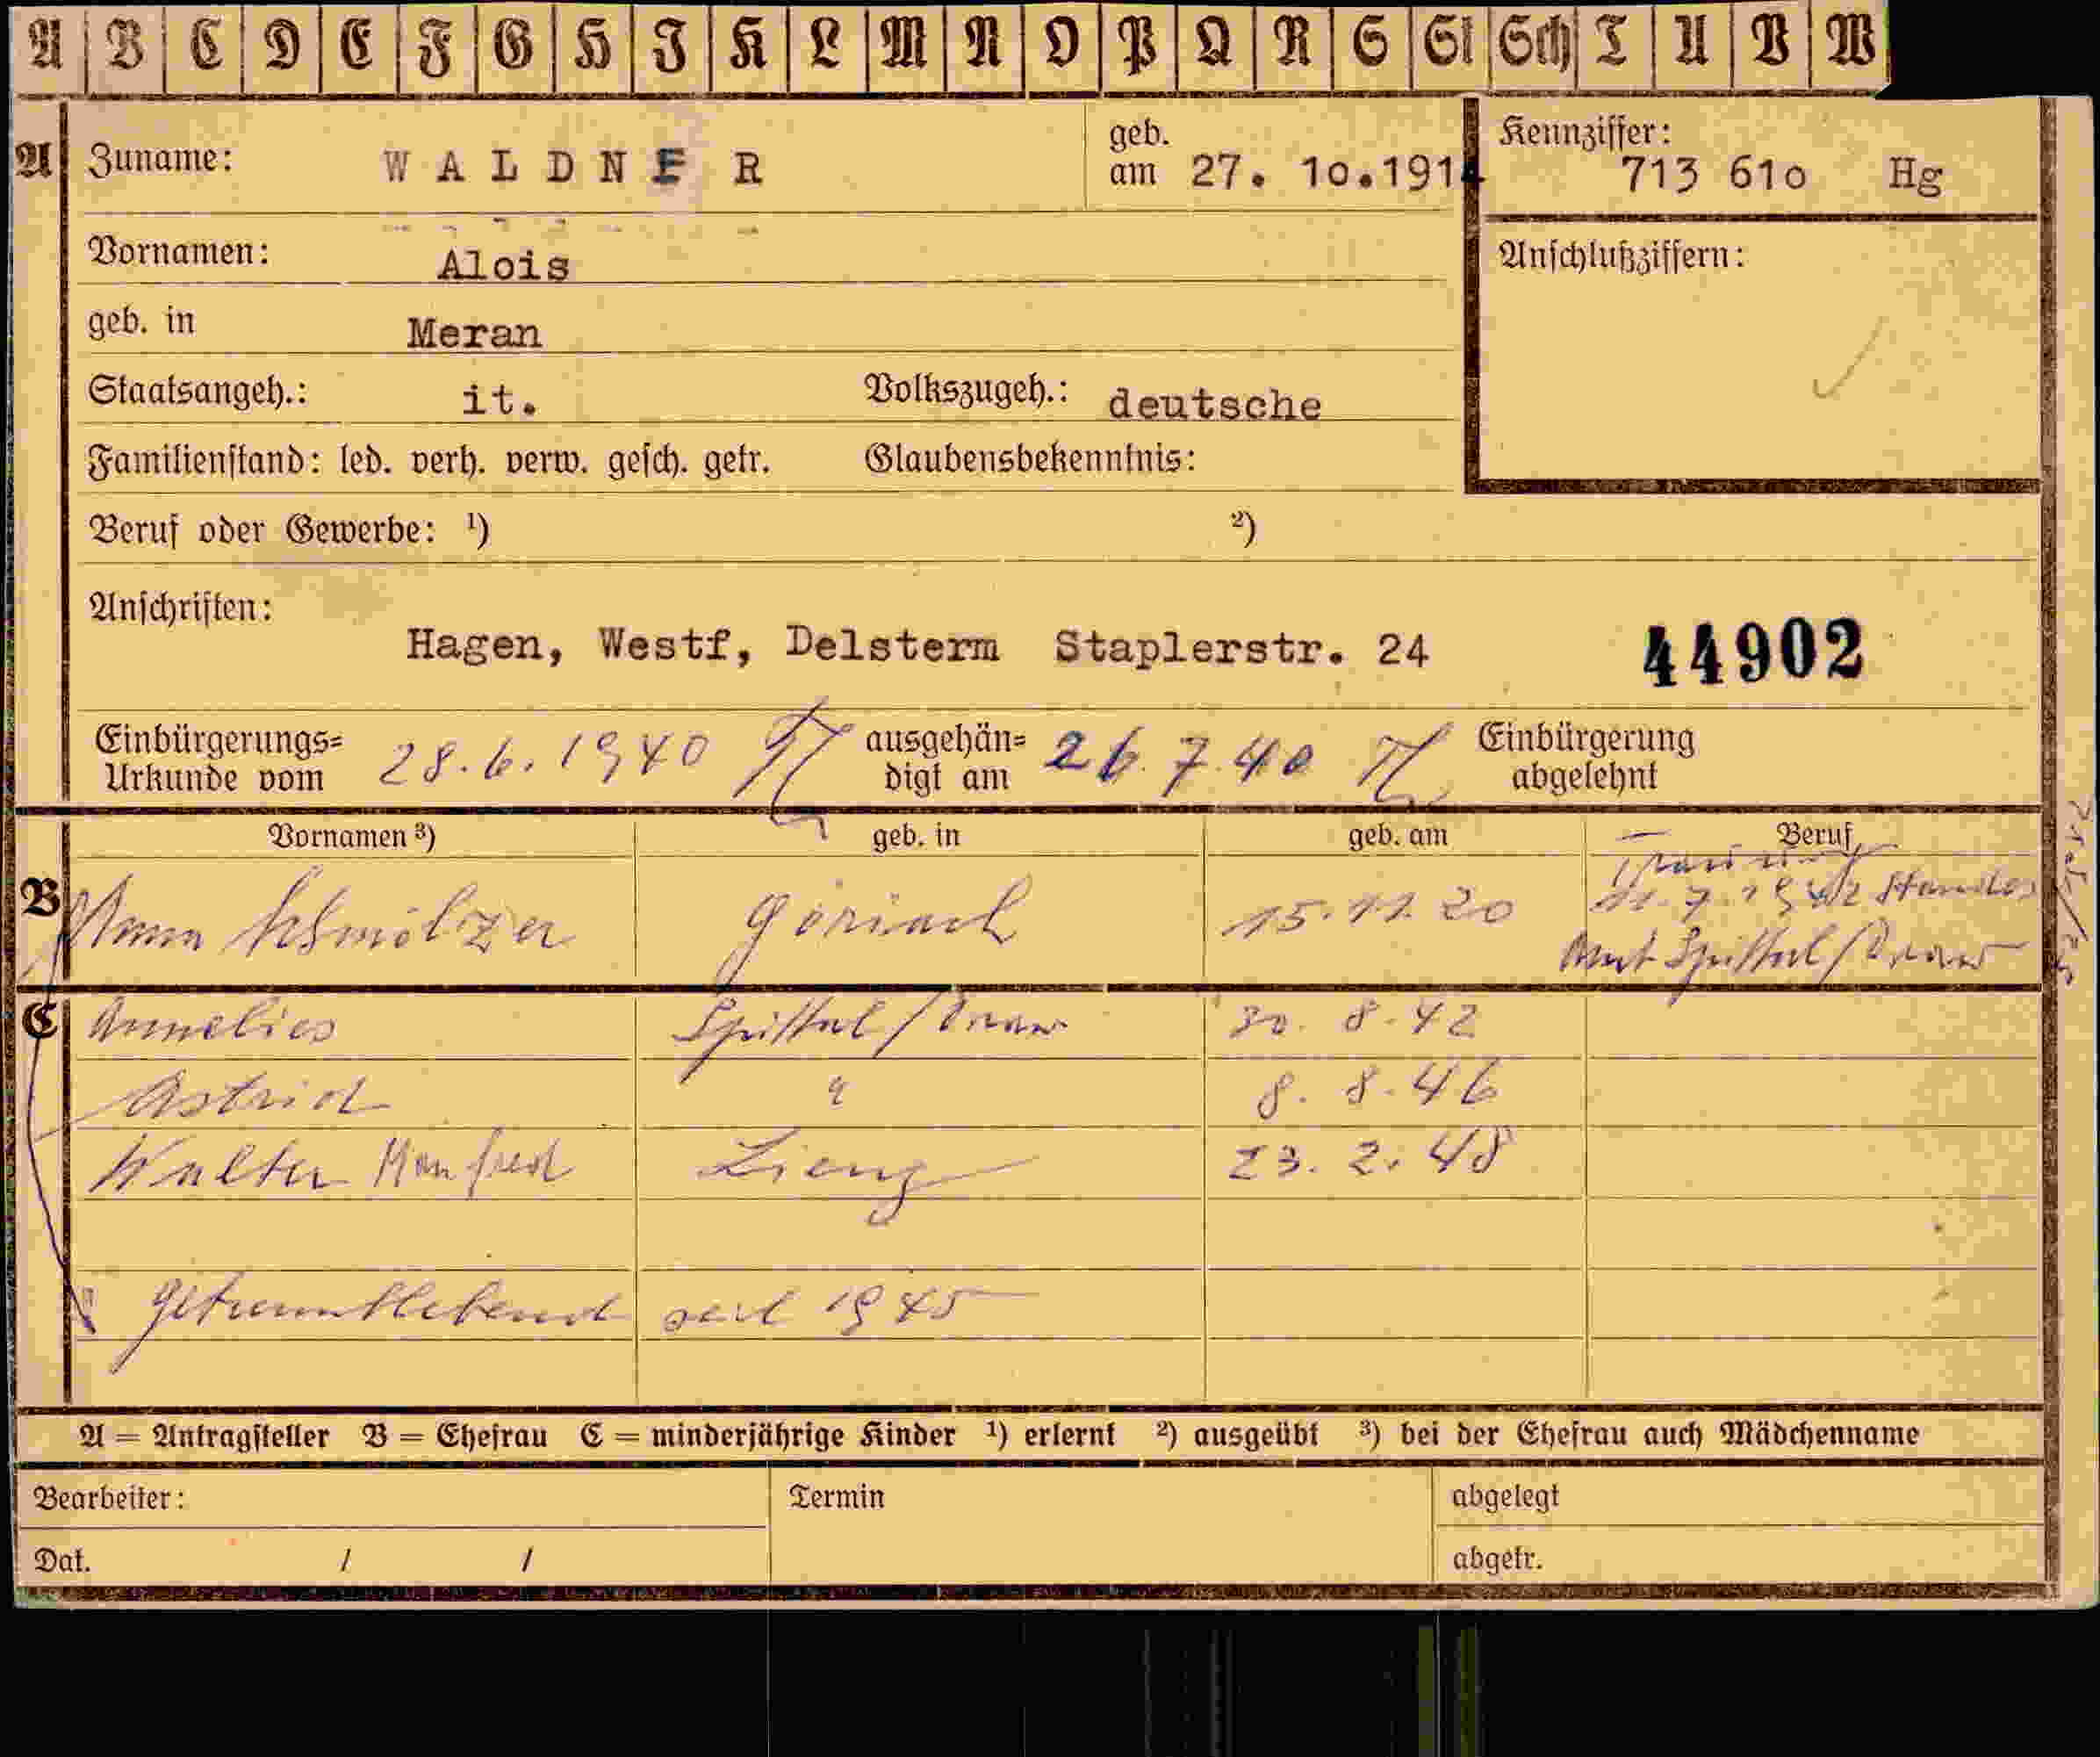 A B C D E F G H I K L M N O P Q R S St Sch T U V W
A Zuname: WALDNER geb. am 27. 10.1914 Kennziffer: 713 610 Hg
Vornamen: Alois Anschlußziffern:
geb. in Meran
Staatsangeh.: it. Volkszugeh.: deutsche
Familienstand: led. verh. verw. gesch. getr. Glaubensbekenntnis:
Beruf oder Gewerbe: ¹) ²)
Anschriften:
Hagen, Westf, Delsterm Staplerstr. 24 44902
Einbürgerungs= Urkunde vom 28.6.1940 ausgehän= digt am 26.7.40 Einbürgerung abgelehnt
Vornamen ³) geb. in geb. am Beruf
Trauung
B Anna Schmölzer Göriach 15.11.20 11.7.1942 Standes
Amt Spittal/Drau
C Annelies Spittal/Drau 30. 8.42
Astrid " 8. 8.46
Walter Manfred Lienz 23. 2. 48
Getrenntlebend seit 1945
A = Antragsteller B = Ehefrau C = minderjährige Kinder ¹) erlernt ²) ausgeübt ³) bei der Ehefrau auch Mädchenname
Bearbeiter: Termin abgelegt
Dat. / / abgetr.